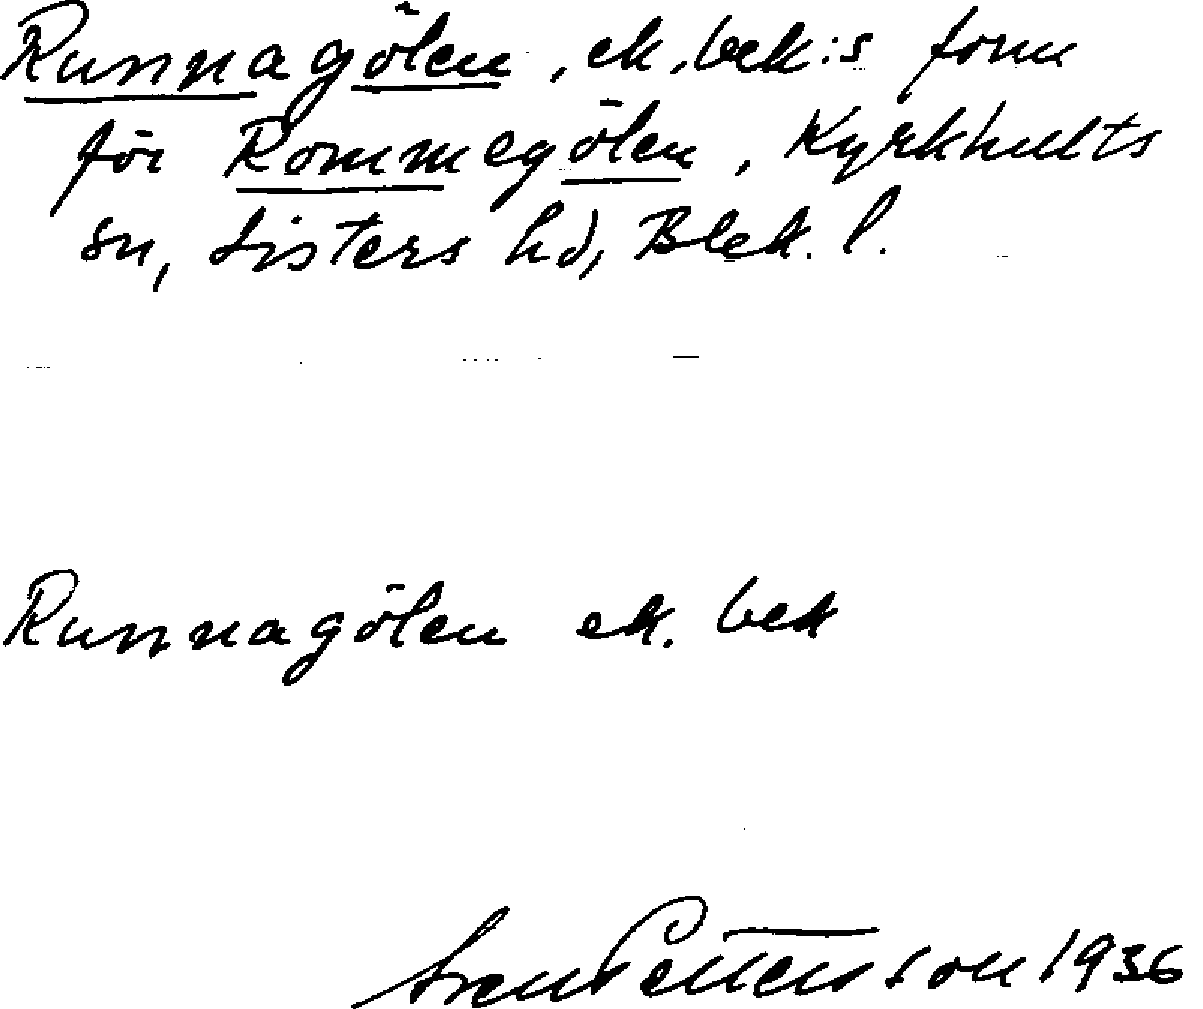 Runnagölen, ek.bek:s form
för Rommegölen, Kyrkhults
sn, Listers hd, Blek. l.
Runnagölen ek. bek
Sven Pettersson 1936